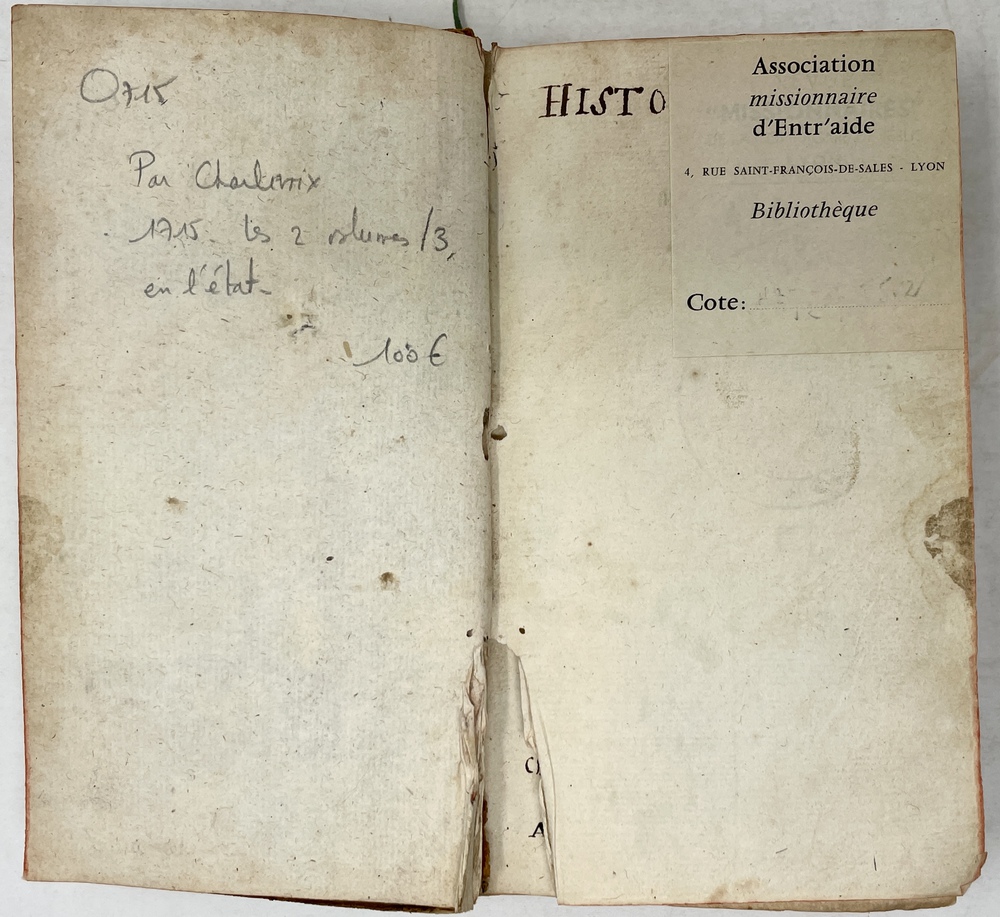 O715
Par Charlevoix
1715. les 2 volumes /3,
en l'état.
100 €
HISTO
Association
missionnaire
d'Entr'aide
4, RUE SAINT-FRANÇOIS-DE-SALES - LYON
Bibliothèque
Cote:
A